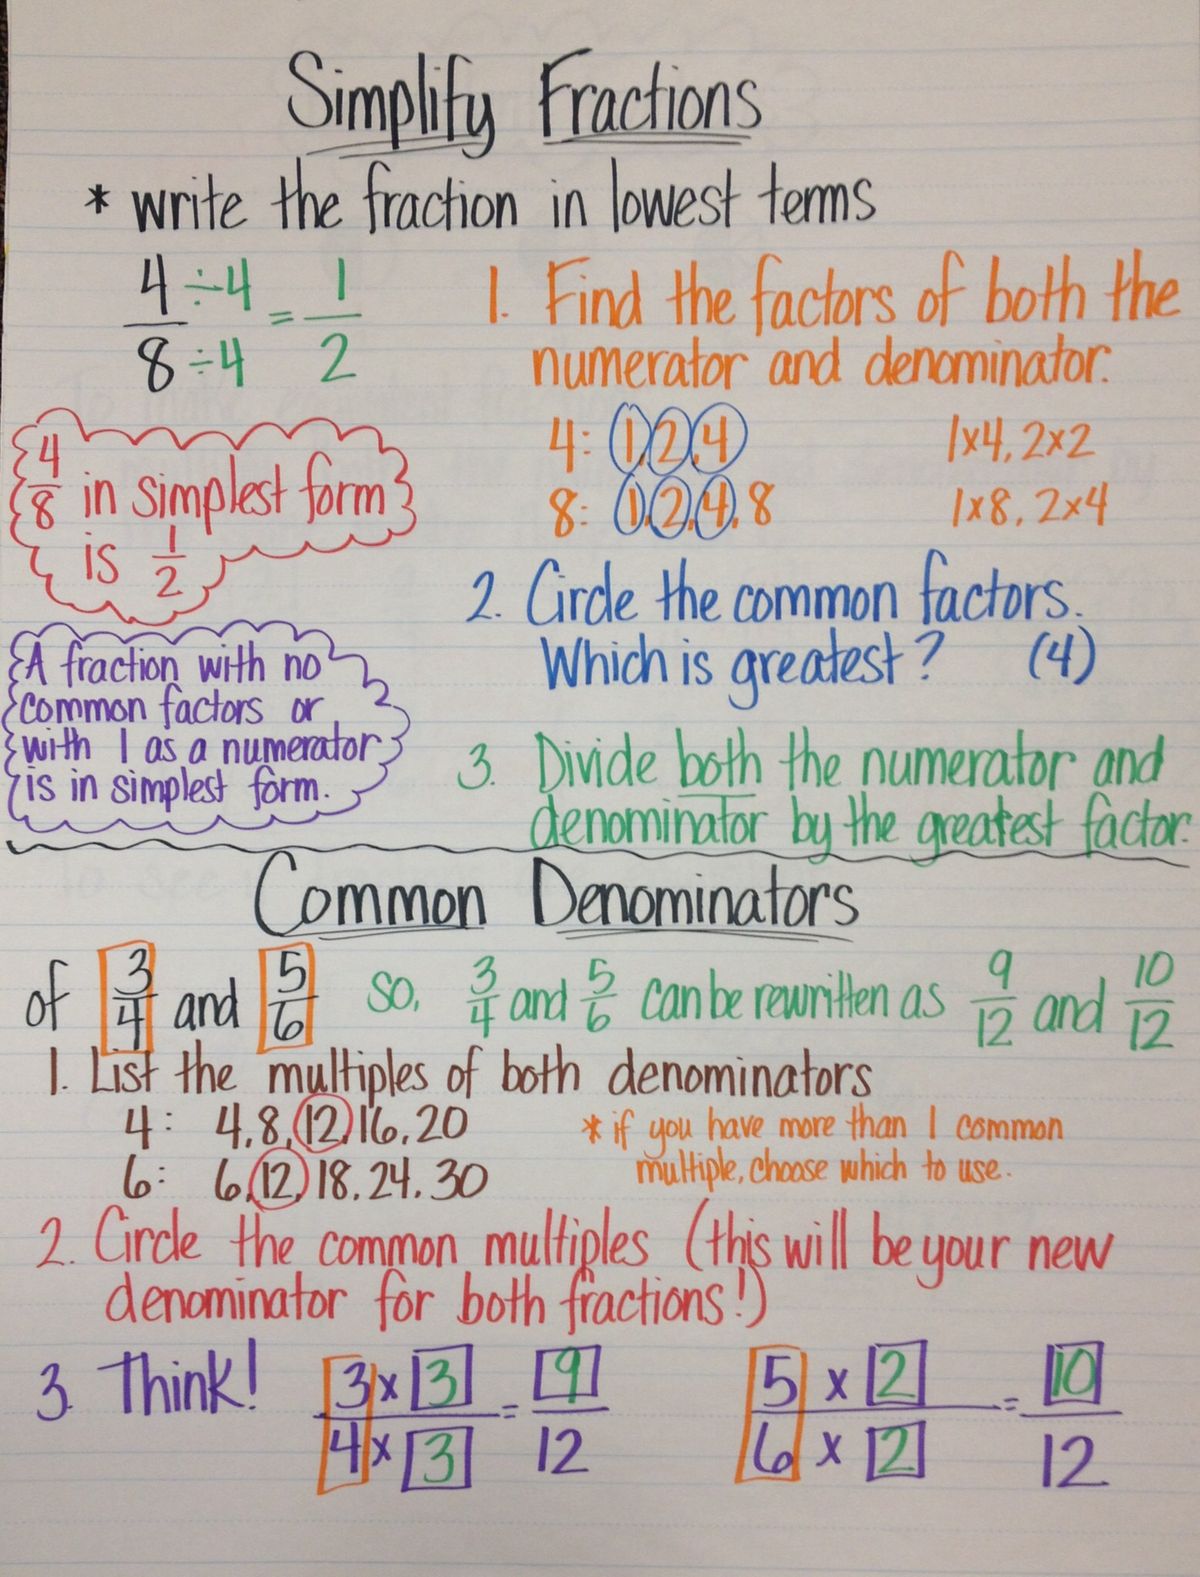 Simplify Fractions
* write the fraction in lowest terms
4 ÷4 = 1
8 ÷4   2
1. Find the factors of both the
numerator and denominator.
4: 1, 2, 4   1x4, 2x2
8: 1, 2, 4, 8   1x8, 2x4
4/8 in simplest form
is 1/2
2. Circle the common factors.
Which is greatest? (4)
A fraction with no
common factors or
with 1 as a numerator
is in simplest form.
3. Divide both the numerator and
denominator by the greatest factor.
Common Denominators
of 3/4 and 5/6 so, 3/4 and 5/6 can be rewritten as 9/12 and 10/12
1. List the multiples of both denominators
4: 4, 8, 12, 16, 20
6: 6, 12, 18, 24, 30
* if you have more than 1 common
multiple, choose which to use.
2. Circle the common multiples (this will be your new
denominator for both fractions!)
3. Think! 3 x 3 = 9   5 x 2 = 10
4 x 3   12   6 x 2   12